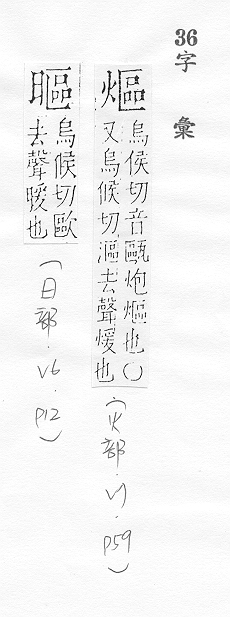 36
字彙
熰
烏侯切音甌炮熰也○
又烏候切漚去聲煖也
(火部.V7.P59)
㬂
烏候切歐
去聲暖也
(日部.V6.P12)